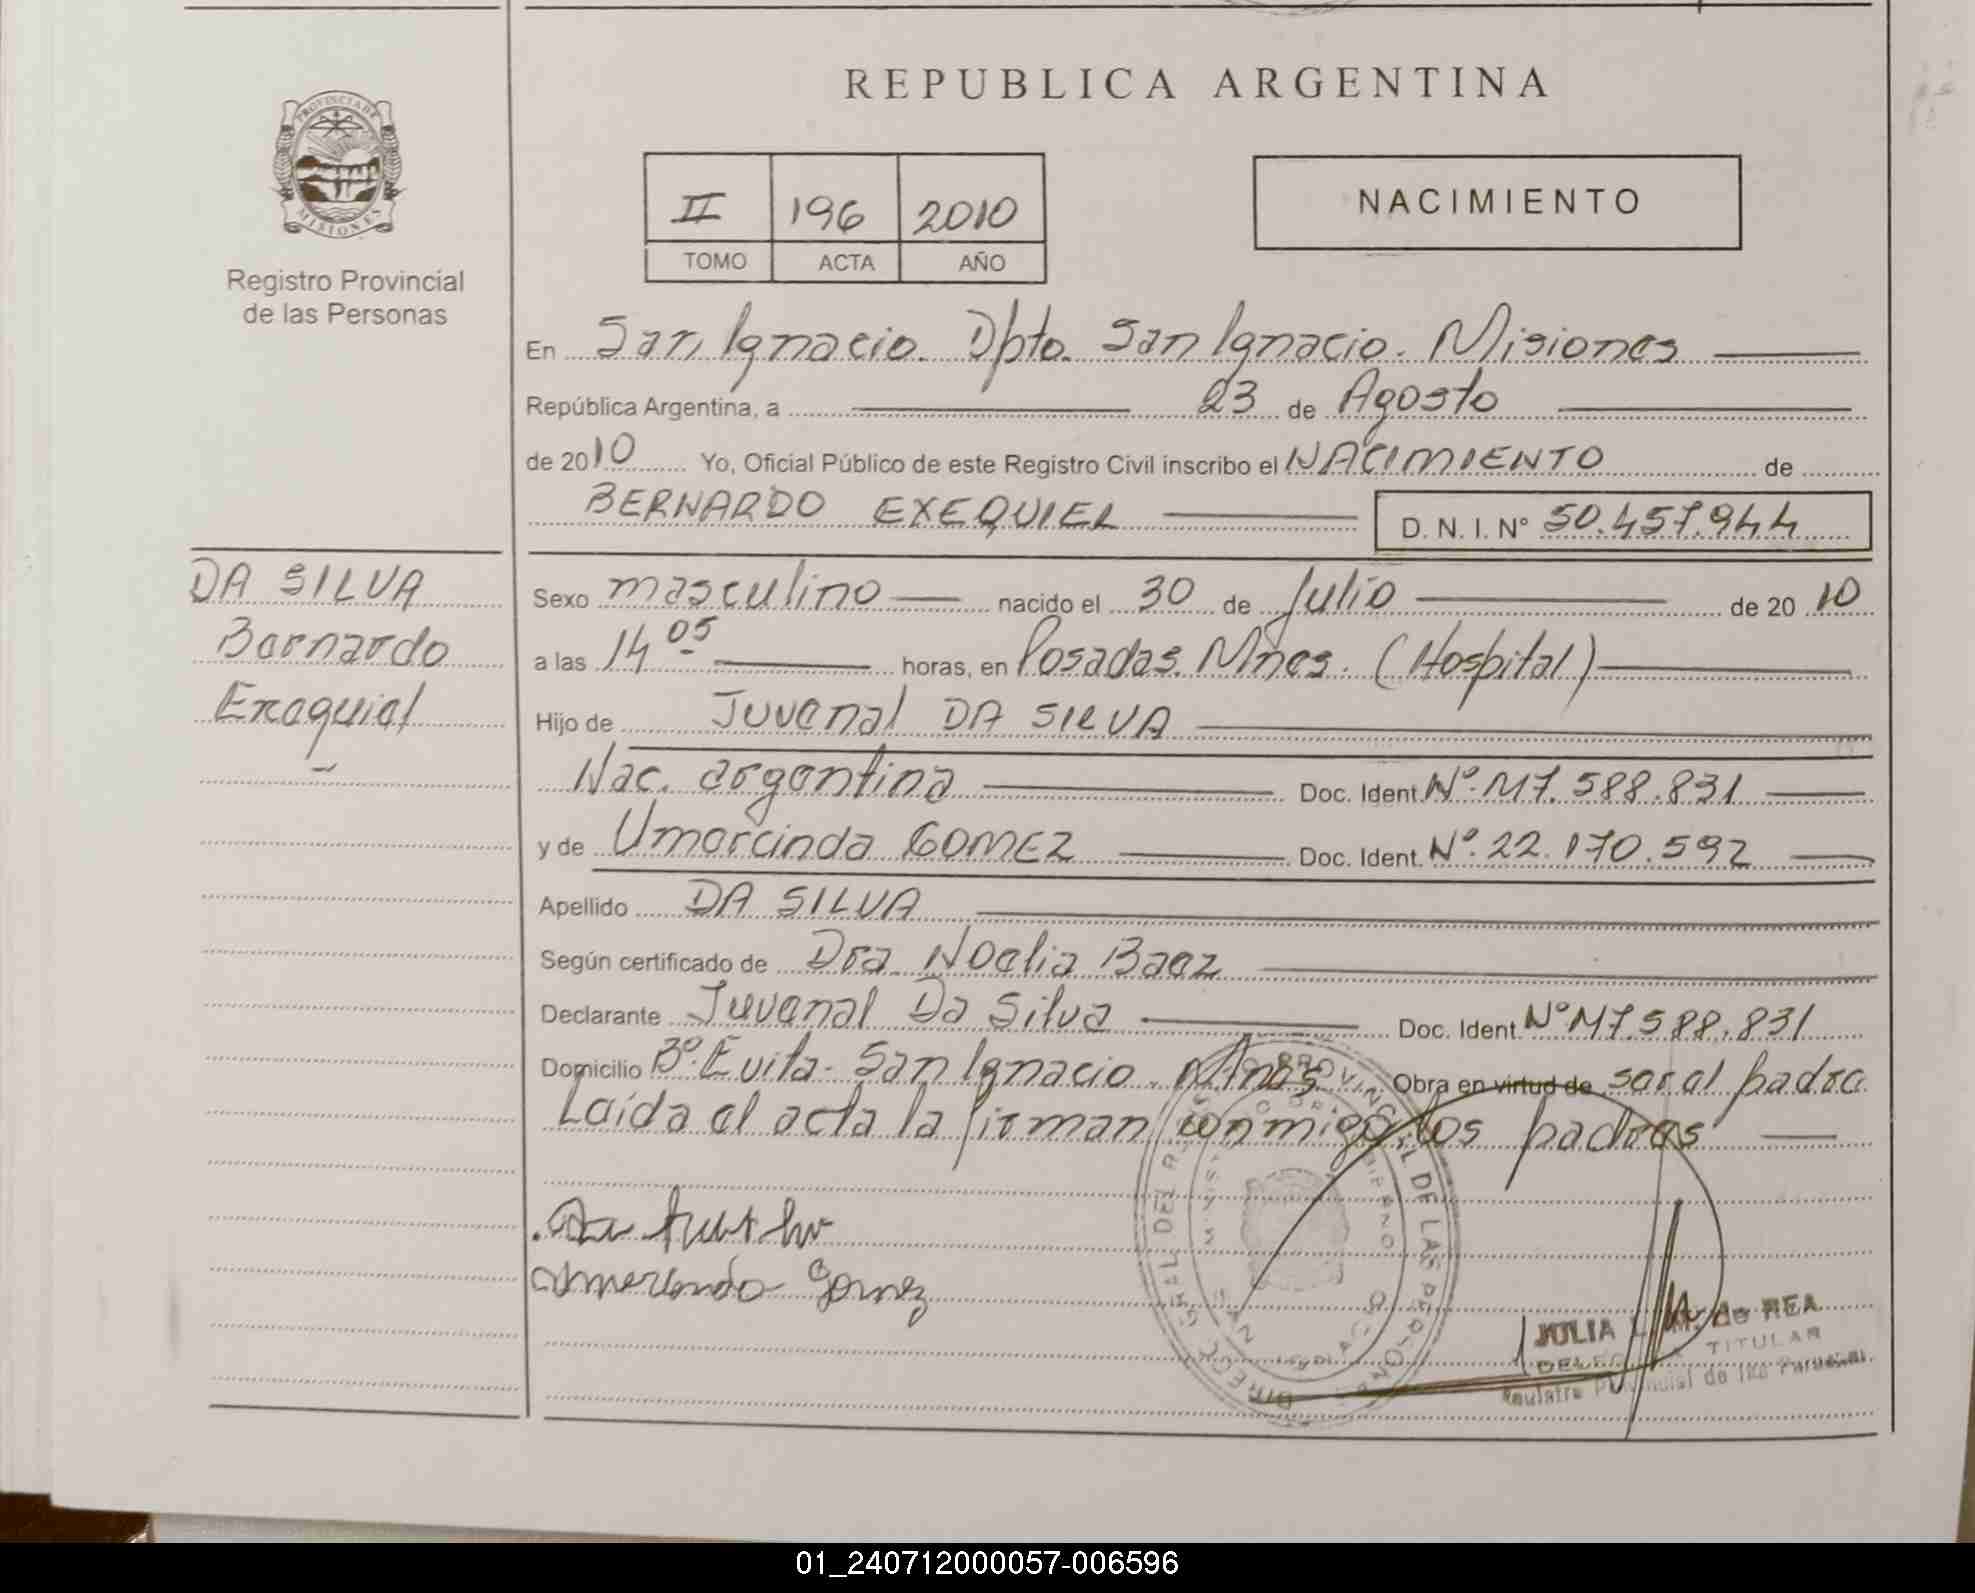 REPUBLICA ARGENTINA
PROVINCIA DE
MISIONES
Registro Provincial
de las Personas
II 196 2010
TOMO ACTA AÑO
NACIMIENTO
En San Ignacio. Dpto. San Ignacio. Misiones
República Argentina, a 23 de Agosto
de 2010 Yo, Oficial Público de este Registro Civil inscribo el NACIMIENTO de
BERNARDO EXEQUIEL D. N. I. Nº 50.457.944
DA SILVA
Bernardo
Exequiel
Sexo masculino nacido el 30 de Julio de 2010
a las 14 05 horas, en Posadas. Mnes. (Hospital)
Hijo de Juvenal DA SILVA
Nac. argentina Doc. Ident. Nº. M7.588.831
y de Umercinda GOMEZ Doc. Ident. Nº. 22.170.592
Apellido DA SILVA
Según certificado de Dra. Noelia Baez
Declarante Juvenal Da Silva Doc. Ident. Nº M7.588.831
Domicilio Bº. Evita. San Ignacio. Mnes. Obra en virtud de ser el padre
Leída el acta la firman conmigo los padres
Gomez
JULIA L. M. de REA
TITULAR
Registro Provincial de las Personas
01_240712000057-006596